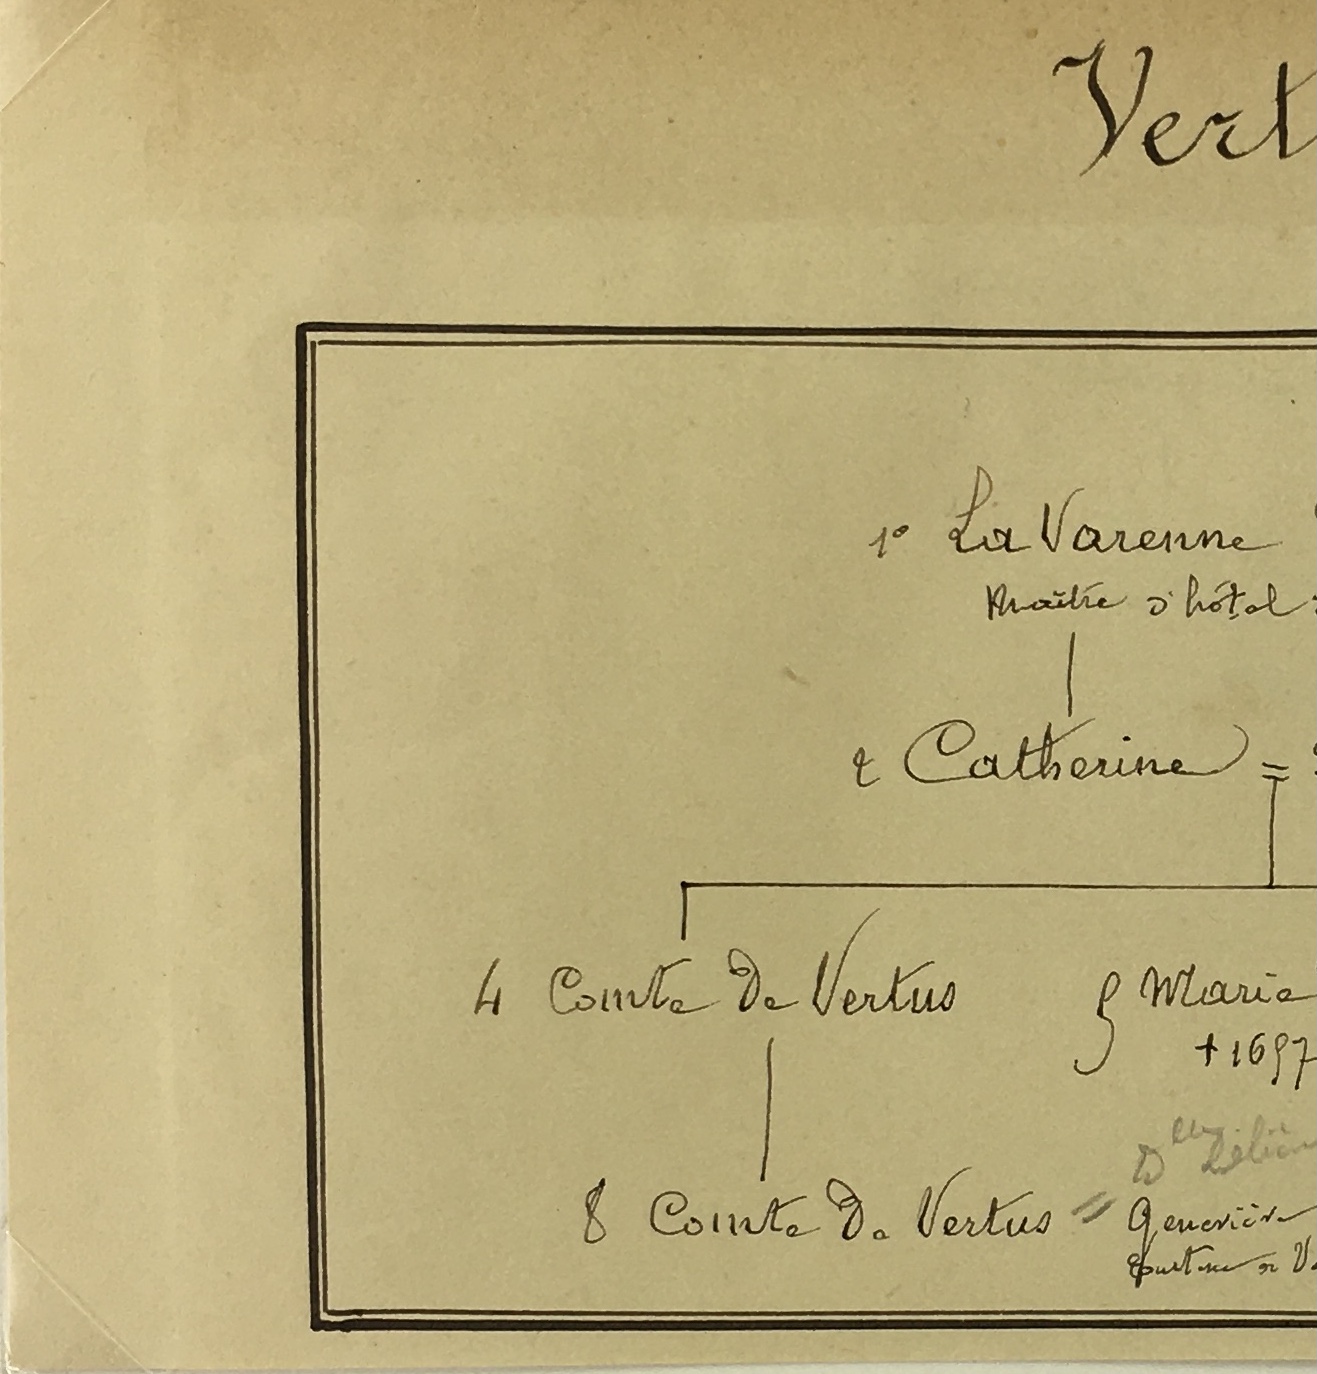 Vert
1° La Varenne
Maître d'hôtel
2 Catherine =
4 Comte De Vertus
5 Marie
+ 1697
D
8 Comte De Vertus = Geneviève